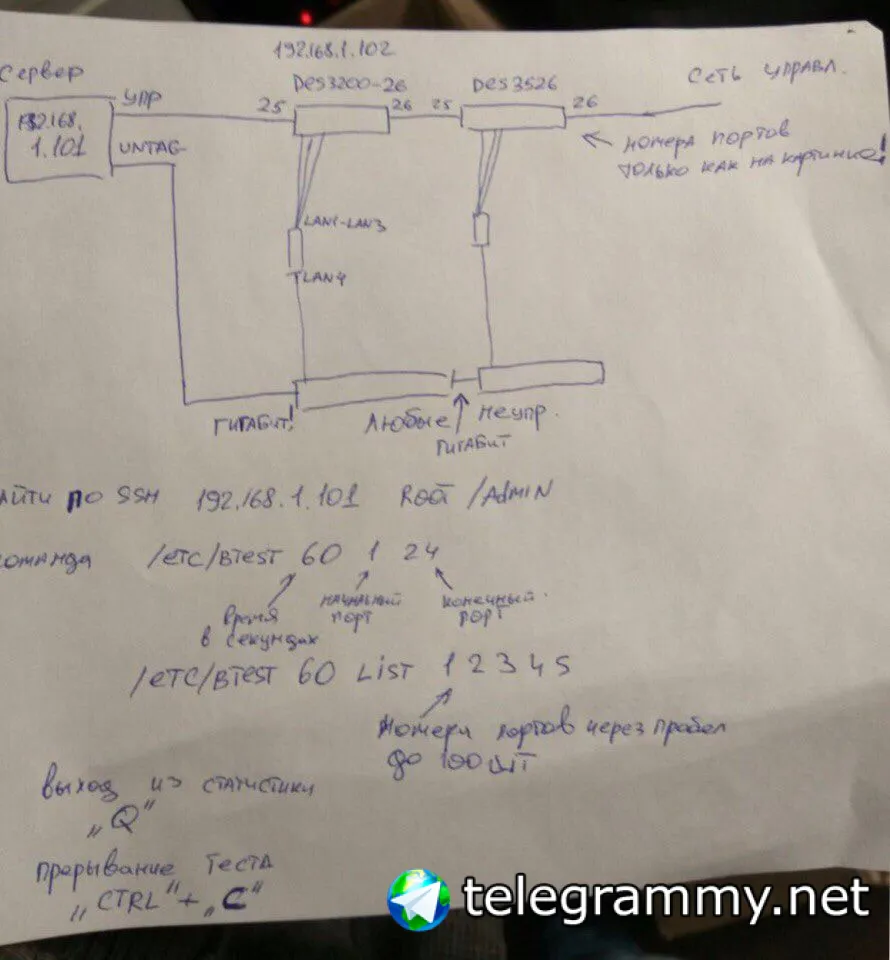 192.168.1.102
Сервер
DES3200-26
DES3526
Сеть управл.
УПР
25
26
25
26
192.168.
1.101
UNTAG
номера портов
только как на картинке!
LAN1-LAN3
LAN4
ГИГАБИТ!
Любые
неупр.
ГИГАБИТ
айти по SSH 192.168.1.101 Root /Admin
оманда /etc/btest 60 1 24
время
в секундах
начальный
порт
конечный
порт
/etc/btest 60 List 1 2 3 4 5
Номера портов через пробел
до 100 шт
выход из статистики
„Q"
прерывание теста
„CTRL"+„C"
telegrammy.net